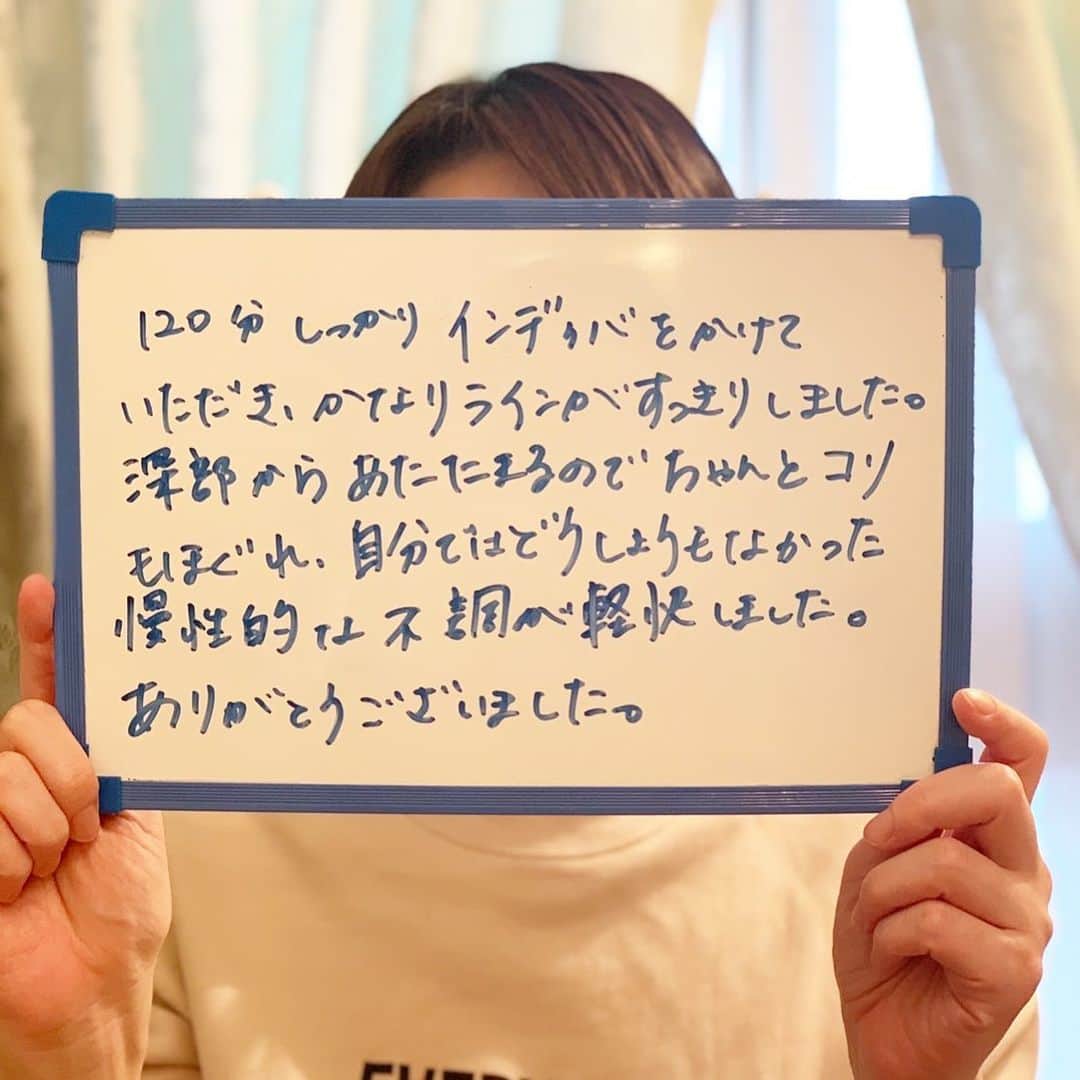 120分 しっかり インディバをかけて
いただき、かなりラインがすっきりしました。
深部からあたたまるのでちゃんとコリ
もほぐれ、自分ではどうしようもなかった
慢性的な不調が軽快しました。
ありがとうございました。